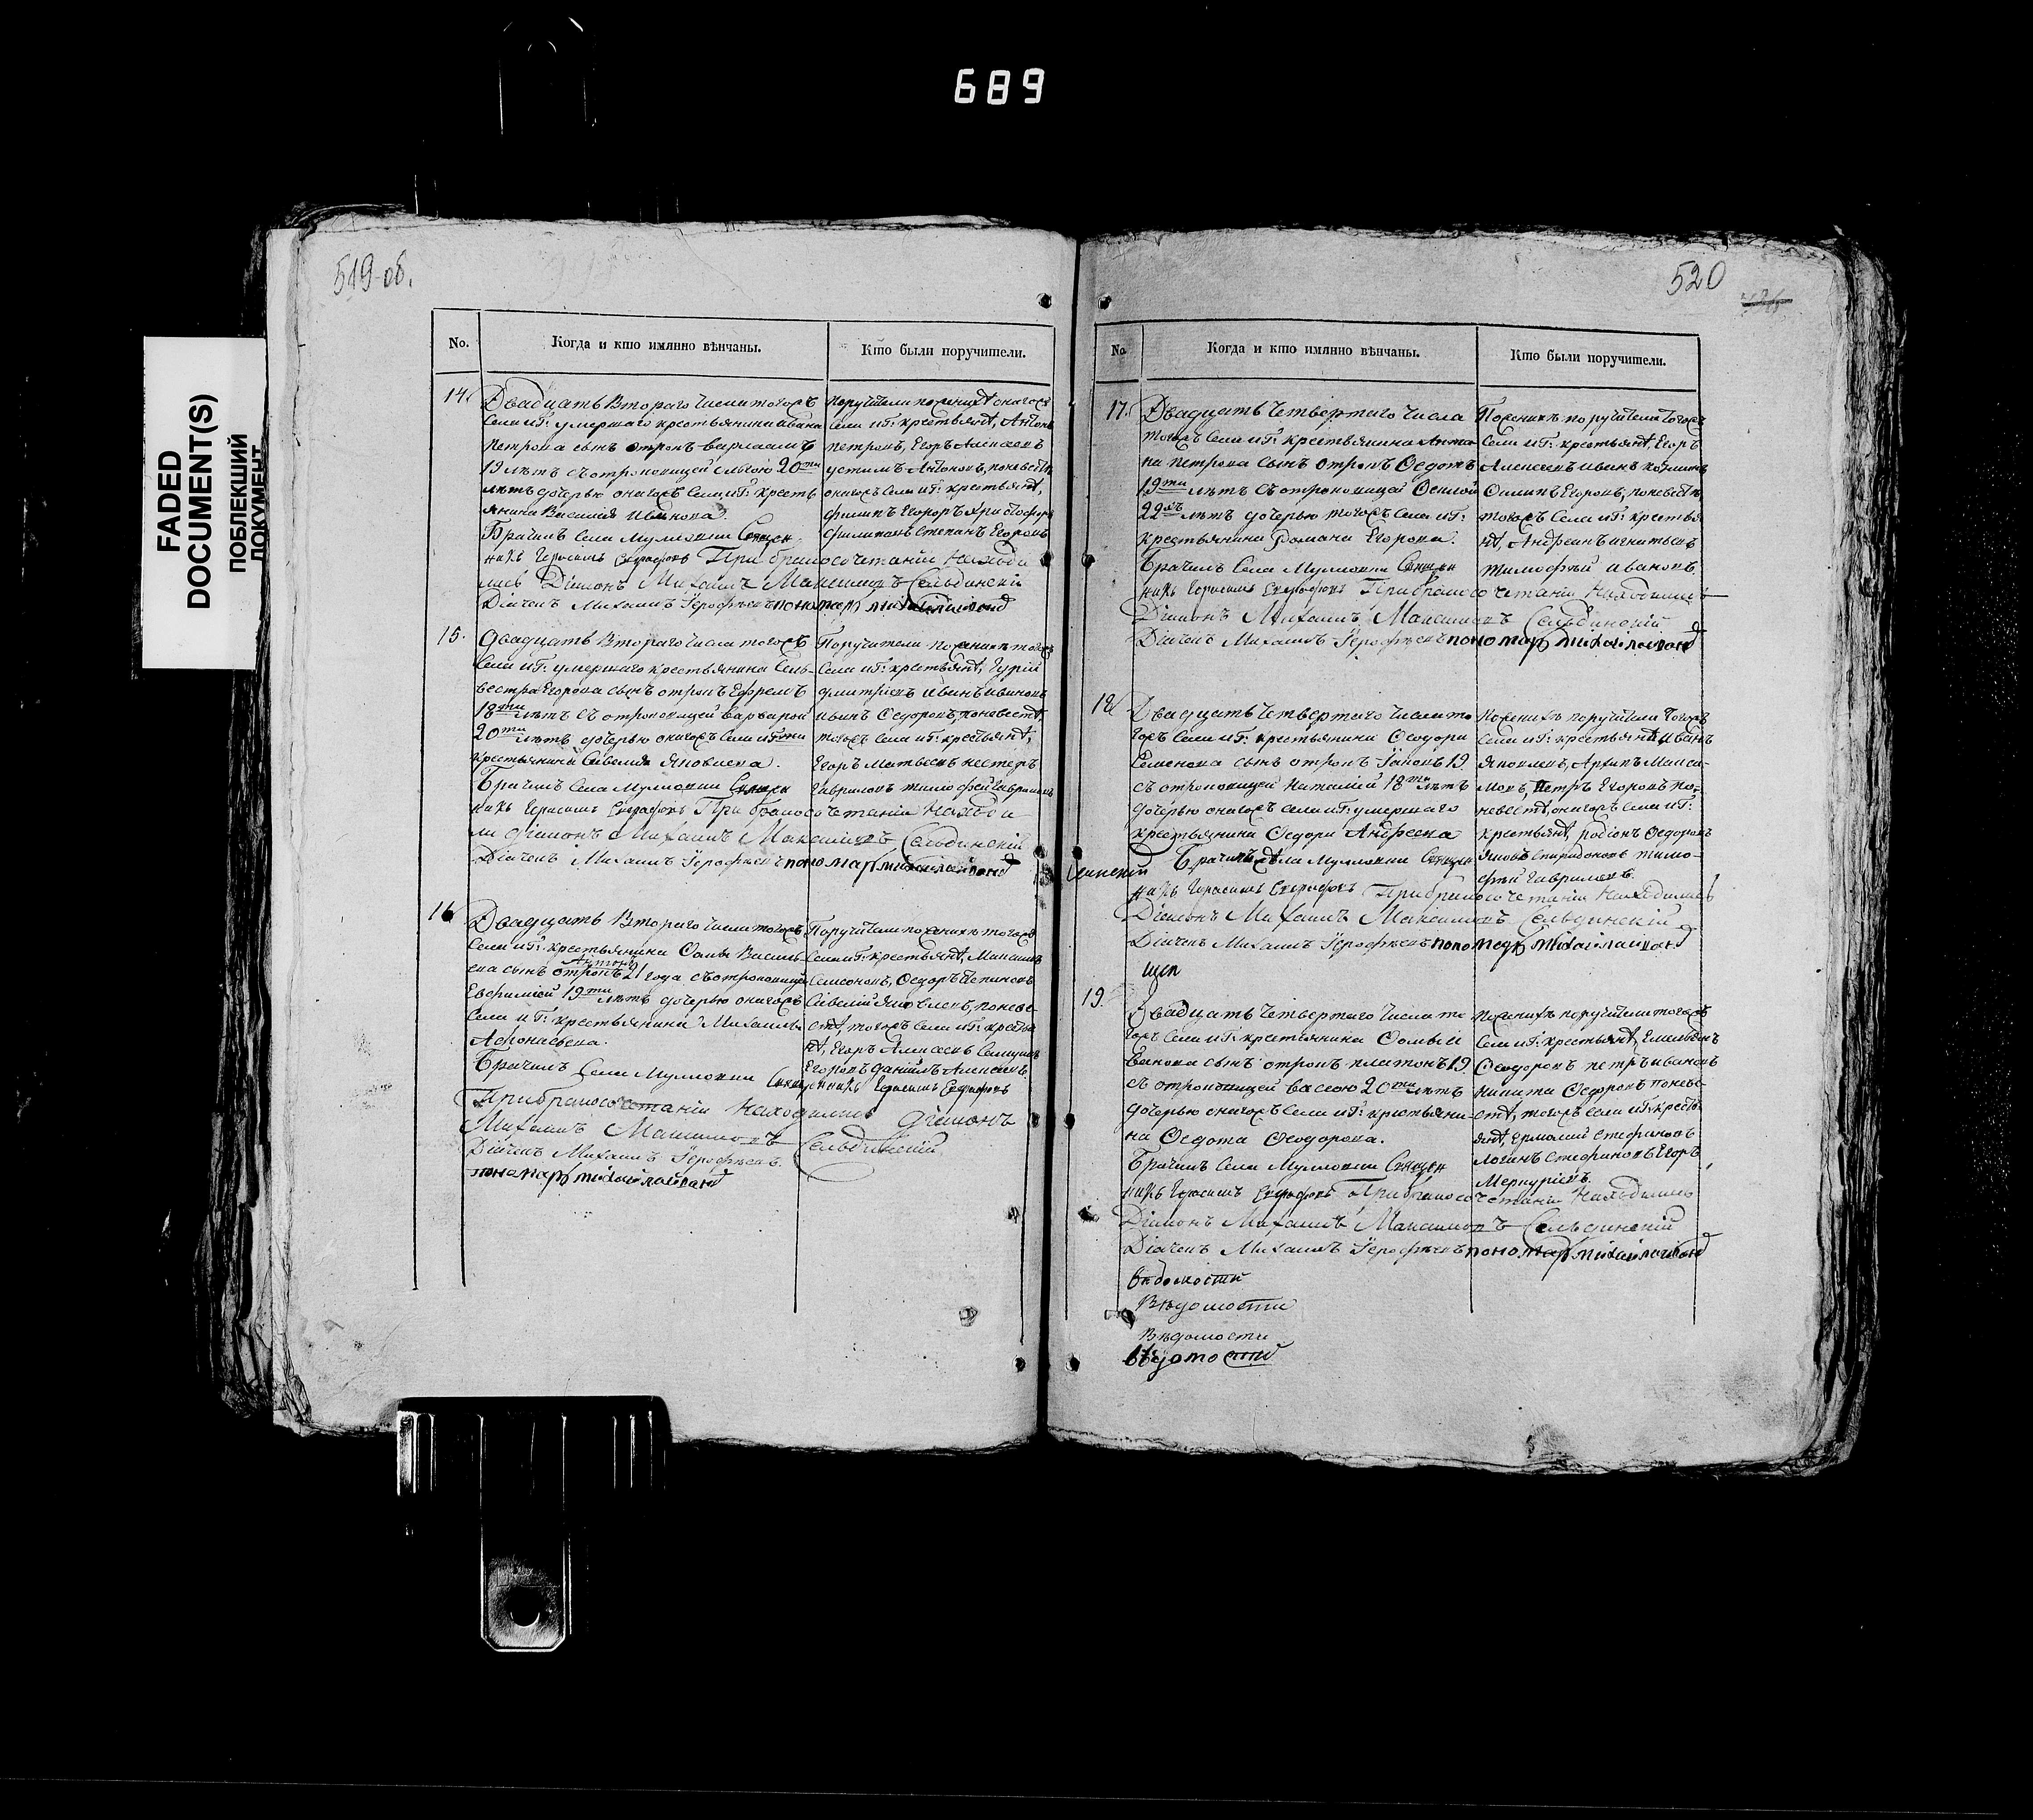 689
FADED
DOCUMENT(S)
ПОБЛЕКШИЙ
ДОКУМЕНТ
519-об.
No.
Когда и кто имянно вѣнчаны.
Кто были поручители.
14.
Двадцать втораго числа тогожъ
села и Г: умершаго крестьянина Ивана
Петрова сынъ отрокъ Варлаамъ
19 лѣтъ съ отроковицей 20ти
лѣтъ дочерью оногожъ села и Г: кресть
янина Василия Иванова.
Брачилъ села Мулловки Священ
никъ Герасимъ При бракосочетаніи находи
лись Діаконъ Михаилъ Максимовъ Сельдинскій
Діачекъ Михаилъ Їерофеевъ пономарь
поручители по женихѣ оногожъ
села и Г: крестьянѣ, Антонъ
Петровъ, Егоръ Алексеевъ
устинъ Антоновъ, по невѣстѣ
оногожъ села и Г: крестьянѣ,
Филипъ Егоровъ Христофоръ
Филиповъ Степанъ Егоровъ
15.
Двадцать втораго числа тогожъ
села и Г: умершаго крестьянина Сель-
вестра Егорова сынъ отрокъ Ефремъ
18ти лѣтъ съ отроковицей Варварой
20ти лѣтъ дочерью оногожъ села и Г:
крестьянина Савелия Яковлева.
Брачилъ села Мулловки Священ
никъ Герасимъ При бракосочетаніи находи
ли діаконъ Михаилъ Максимовъ Сельдинскій
Діачекъ Михаилъ Їерофеевъ пономарь
Поручители по женихѣ тогожъ
села и Г: крестьянѣ, Гурій
Дмитріевъ Иванъ Ивановъ
Иванъ Федоровъ, по невѣстѣ,
тогожъ села и Г: крестьянѣ,
Егоръ Матвеевъ Нестеръ
Гавриловъ Тимофей Гавриловъ
16
Двадцать втораго числа тогожъ
села и Г: крестьянина Фомы Василь-
ева сынъ отрокъ Антонъ 21 года съ отроковицей
Евфимией 19ти лѣтъ дочерью оногожъ
села и Г: крестьянина Михаила
Афонасьева.
Брачилъ села Мулловки Священникъ Герасимъ
При бракосочетаніи находились діаконъ
Михаилъ Максимовъ Сельдинскій
Діачекъ Михаилъ Їерофеевъ.
пономарь
Поручители по женихѣ тогожъ
села и Г: крестьянѣ, Максимъ
Семеновъ, Федоръ Степановъ
Савелий Яковлевъ, по неве-
стѣ, тогожъ села и Г: крестья
нѣ, Егоръ Алексеевъ
Егоровъ Даниилъ Алексеевъ
520
No.
Когда и кто имянно вѣнчаны.
Кто были поручители.
17.
Двадцать четвертаго числа
тогожъ села и Г: крестьянина Анто
на Петрова сынъ отрокъ Федотъ
19ти лѣтъ съ отроковицей Феклой
22хъ лѣтъ дочерью тогожъ села и Г:
крестьянина Романа Егорова.
Брачилъ села Мулловки Священ
никъ Герасимъ При бракосочетаніи находились
Діаконъ Михаилъ Максимовъ Сельдинскій
Діачекъ Михаилъ Їерофеевъ пономарь
По женихѣ поручители тогожъ
села и Г: крестьянѣ, Егоръ
Алексеевъ Иванъ
Филипъ Егоровъ, по невѣстѣ
тогожъ села и Г: крестья
нѣ, Андреанъ Игнатьевъ
Тимофей Ивановъ.
18.
Двадцать четвертаго числа то
гожъ села и Г: крестьянина Феодора
Семенова сынъ отрокъ Їаковъ 19
съ отроковицей Наталией 18ти лѣтъ
дочерью оногожъ села и Г: умершаго
крестьянина Федора Андреева
Брачилъ села Мулловки Священ
никъ Герасимъ При бракосочетаніи находились
Діаконъ Михаилъ Максимовъ Сельдинскій
Діачекъ Михаилъ Їерофеевъ пономарь
По женихѣ поручители тогожъ
села и Г: крестьянѣ, Иванъ
Яковлевъ, Архипъ Макси-
мовъ, Петръ Егоровъ по-
невестѣ, оногожъ села и Г:
крестьянѣ, Родіонъ Федоровъ
Яковъ Спиридоновъ Тимо-
фей Гавриловъ.
19.
Двадцать четвертаго числа то
гожъ села и Г: крестьянина Фомы И
ванова сынъ отрокъ Платонъ 19
съ отроковицей Вассою 20ти лѣтъ
дочерью оногожъ села и Г: крестьяни-
на Федота Феодорова.
Брачилъ села Мулловки Священ
никъ Герасимъ При бракосочетаніи находились
Діаконъ Михаилъ Максимовъ Сельдинскій
Діачекъ Михаилъ Їерофеевъ пономарь
По женихѣ поручители тогожъ
села и Г: крестьянѣ, Емельянъ
Феодоровъ Петръ Ивановъ
Никита Федоровъ по неве-
стѣ, тогожъ села и Г: кресть
янѣ, Ермолай Стефановъ
Логинъ Стефановъ Егоръ
Меркуріевъ.
вѣдомости
Вѣдомости
Вѣдомости